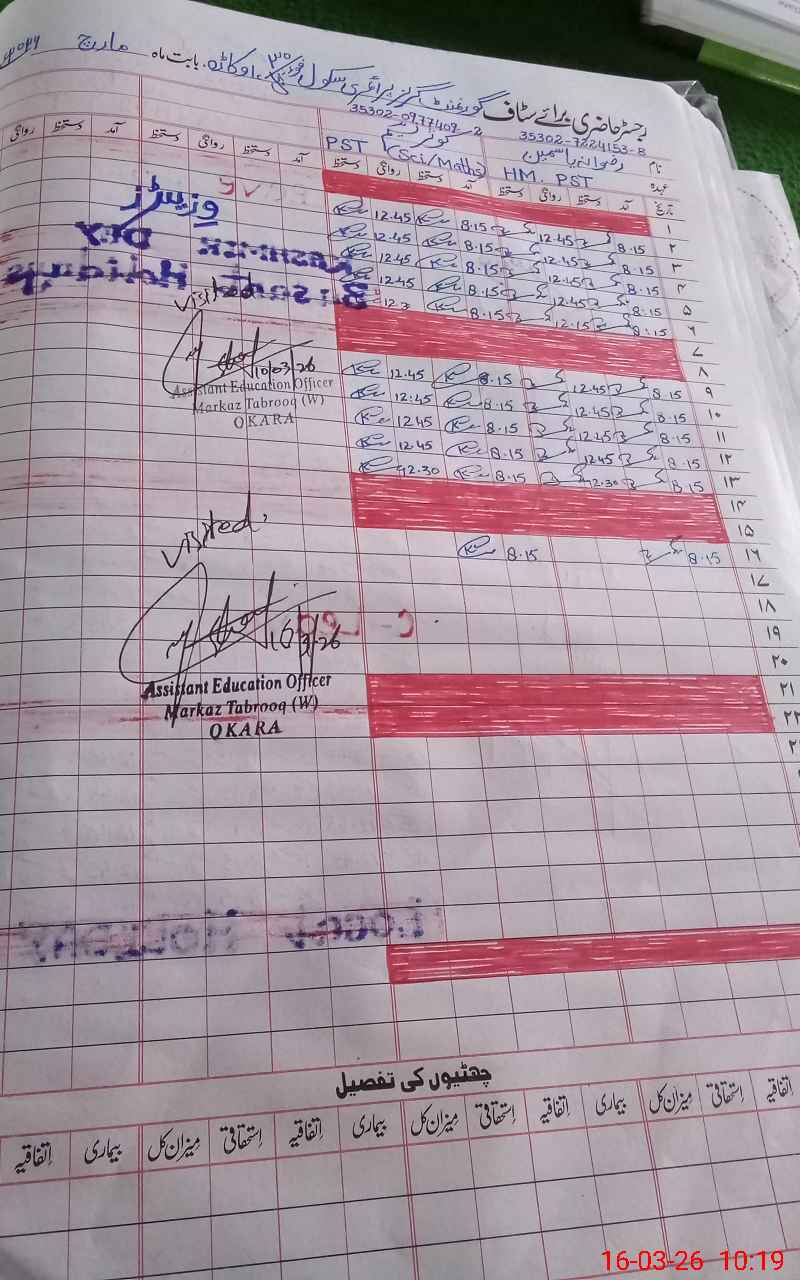 رجسٹر حاضری برائے سٹاف گورنمنٹ گرلز پرائمری سکول اوکاڑہ۔ بابت ماہ مارچ
35302-7224153-8 35302-0977409-2
نام
عہدہ HM. PST (Sci/Maths) PST
تاریخ آمد دستخط روانگی دستخط آمد دستخط روانگی دستخط آمد دستخط روانگی دستخط آمد دستخط روانگی
۱ 8.15 12.45 8.15 12.45
۲ 8.15 12.45 8.15 12.45
۳ 8.15 12.45 8.15 12.45
۴ 8.15 12.45 8.15 12.45
۵ 8.15 12.15 8.15
۶
۷
۸
۹ 8.15 12.45 8.15 12.45
۱۰ 8.15 12.45 8.15 12:45
۱۱ 8.15 12.45 8.15 12.45
۱۲ 8.15 12.45 8.15 12.45
۱۳ 8.15 12.30 8.15 12.30
۱۴
۱۵
۱۶ 8.15 8.15
۱۷
۱۸
۱۹
۲۰
۲۱
۲۲
وزیٹرز
Visited
10/03/26
Assistant Education Officer
Markaz Tabrooq (W)
OKARA
Visited,
16/3/26
Assistant Education Officer
Markaz Tabrooq (W)
OKARA
چھٹیوں کی تفصیل
اتفاقیہ استحقاقی میزان کل بیماری اتفاقیہ استحقاقی میزان کل بیماری اتفاقیہ استحقاقی میزان کل بیماری اتفاقیہ
16-03-26 10:19